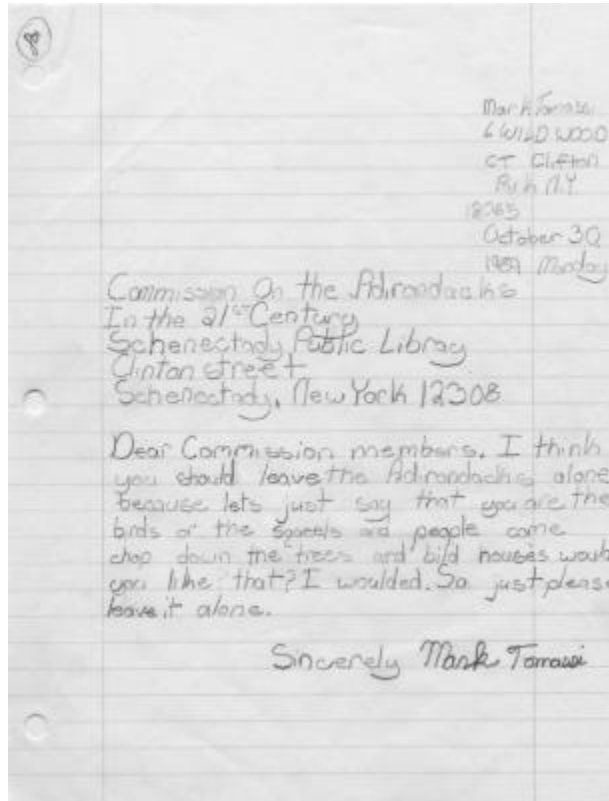 8
Mark Tomassi
6 WILD WOOD
CT Clifton
Park N.Y.
October 30
1989 Monday
Commission On the Adirondacks
In the 21st Century
Schenectady Public Library
Clinton street
Schenectady, New York 12308
Dear Commission members, I think
you should leave the Adirondacks alone
because lets just say that you are the
birds or the sqeeels and people come
chop down the trees and bild houses would
you like that? I woulded. So just please
leave it alone.
Sincerely Mark Tomassi